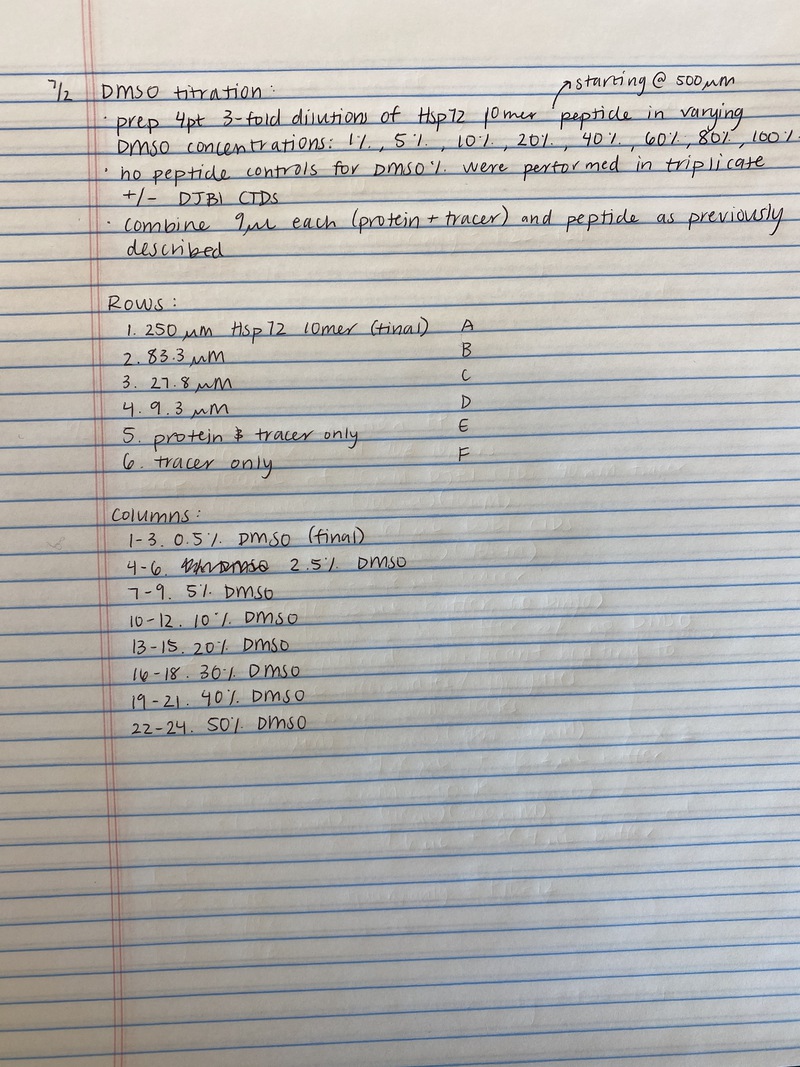 ↗ starting @ 500 μM
7/2 DMSO titration:
· prep 4pt 3-fold dilutions of Hsp72 10mer peptide in varying
DMSO concentrations: 1%, 5%, 10%, 20%, 40%, 60%, 80%, 100%.
· no peptide controls for DMSO % were performed in triplicate
+/- DJB1 CTDs
· combine 9μL each (protein + tracer) and peptide as previously
described
Rows:
1. 250 μM Hsp72 10mer (final) A
2. 83.3 μM B
3. 27.8 μM C
4. 9.3 μM D
5. protein & tracer only E
6. tracer only F
Columns:
1-3. 0.5% DMSO (final)
4-6. 2.5% DMSO
7-9. 5% DMSO
10-12. 10% DMSO
13-15. 20% DMSO
16-18. 30% DMSO
19-21. 40% DMSO
22-24. 50% DMSO